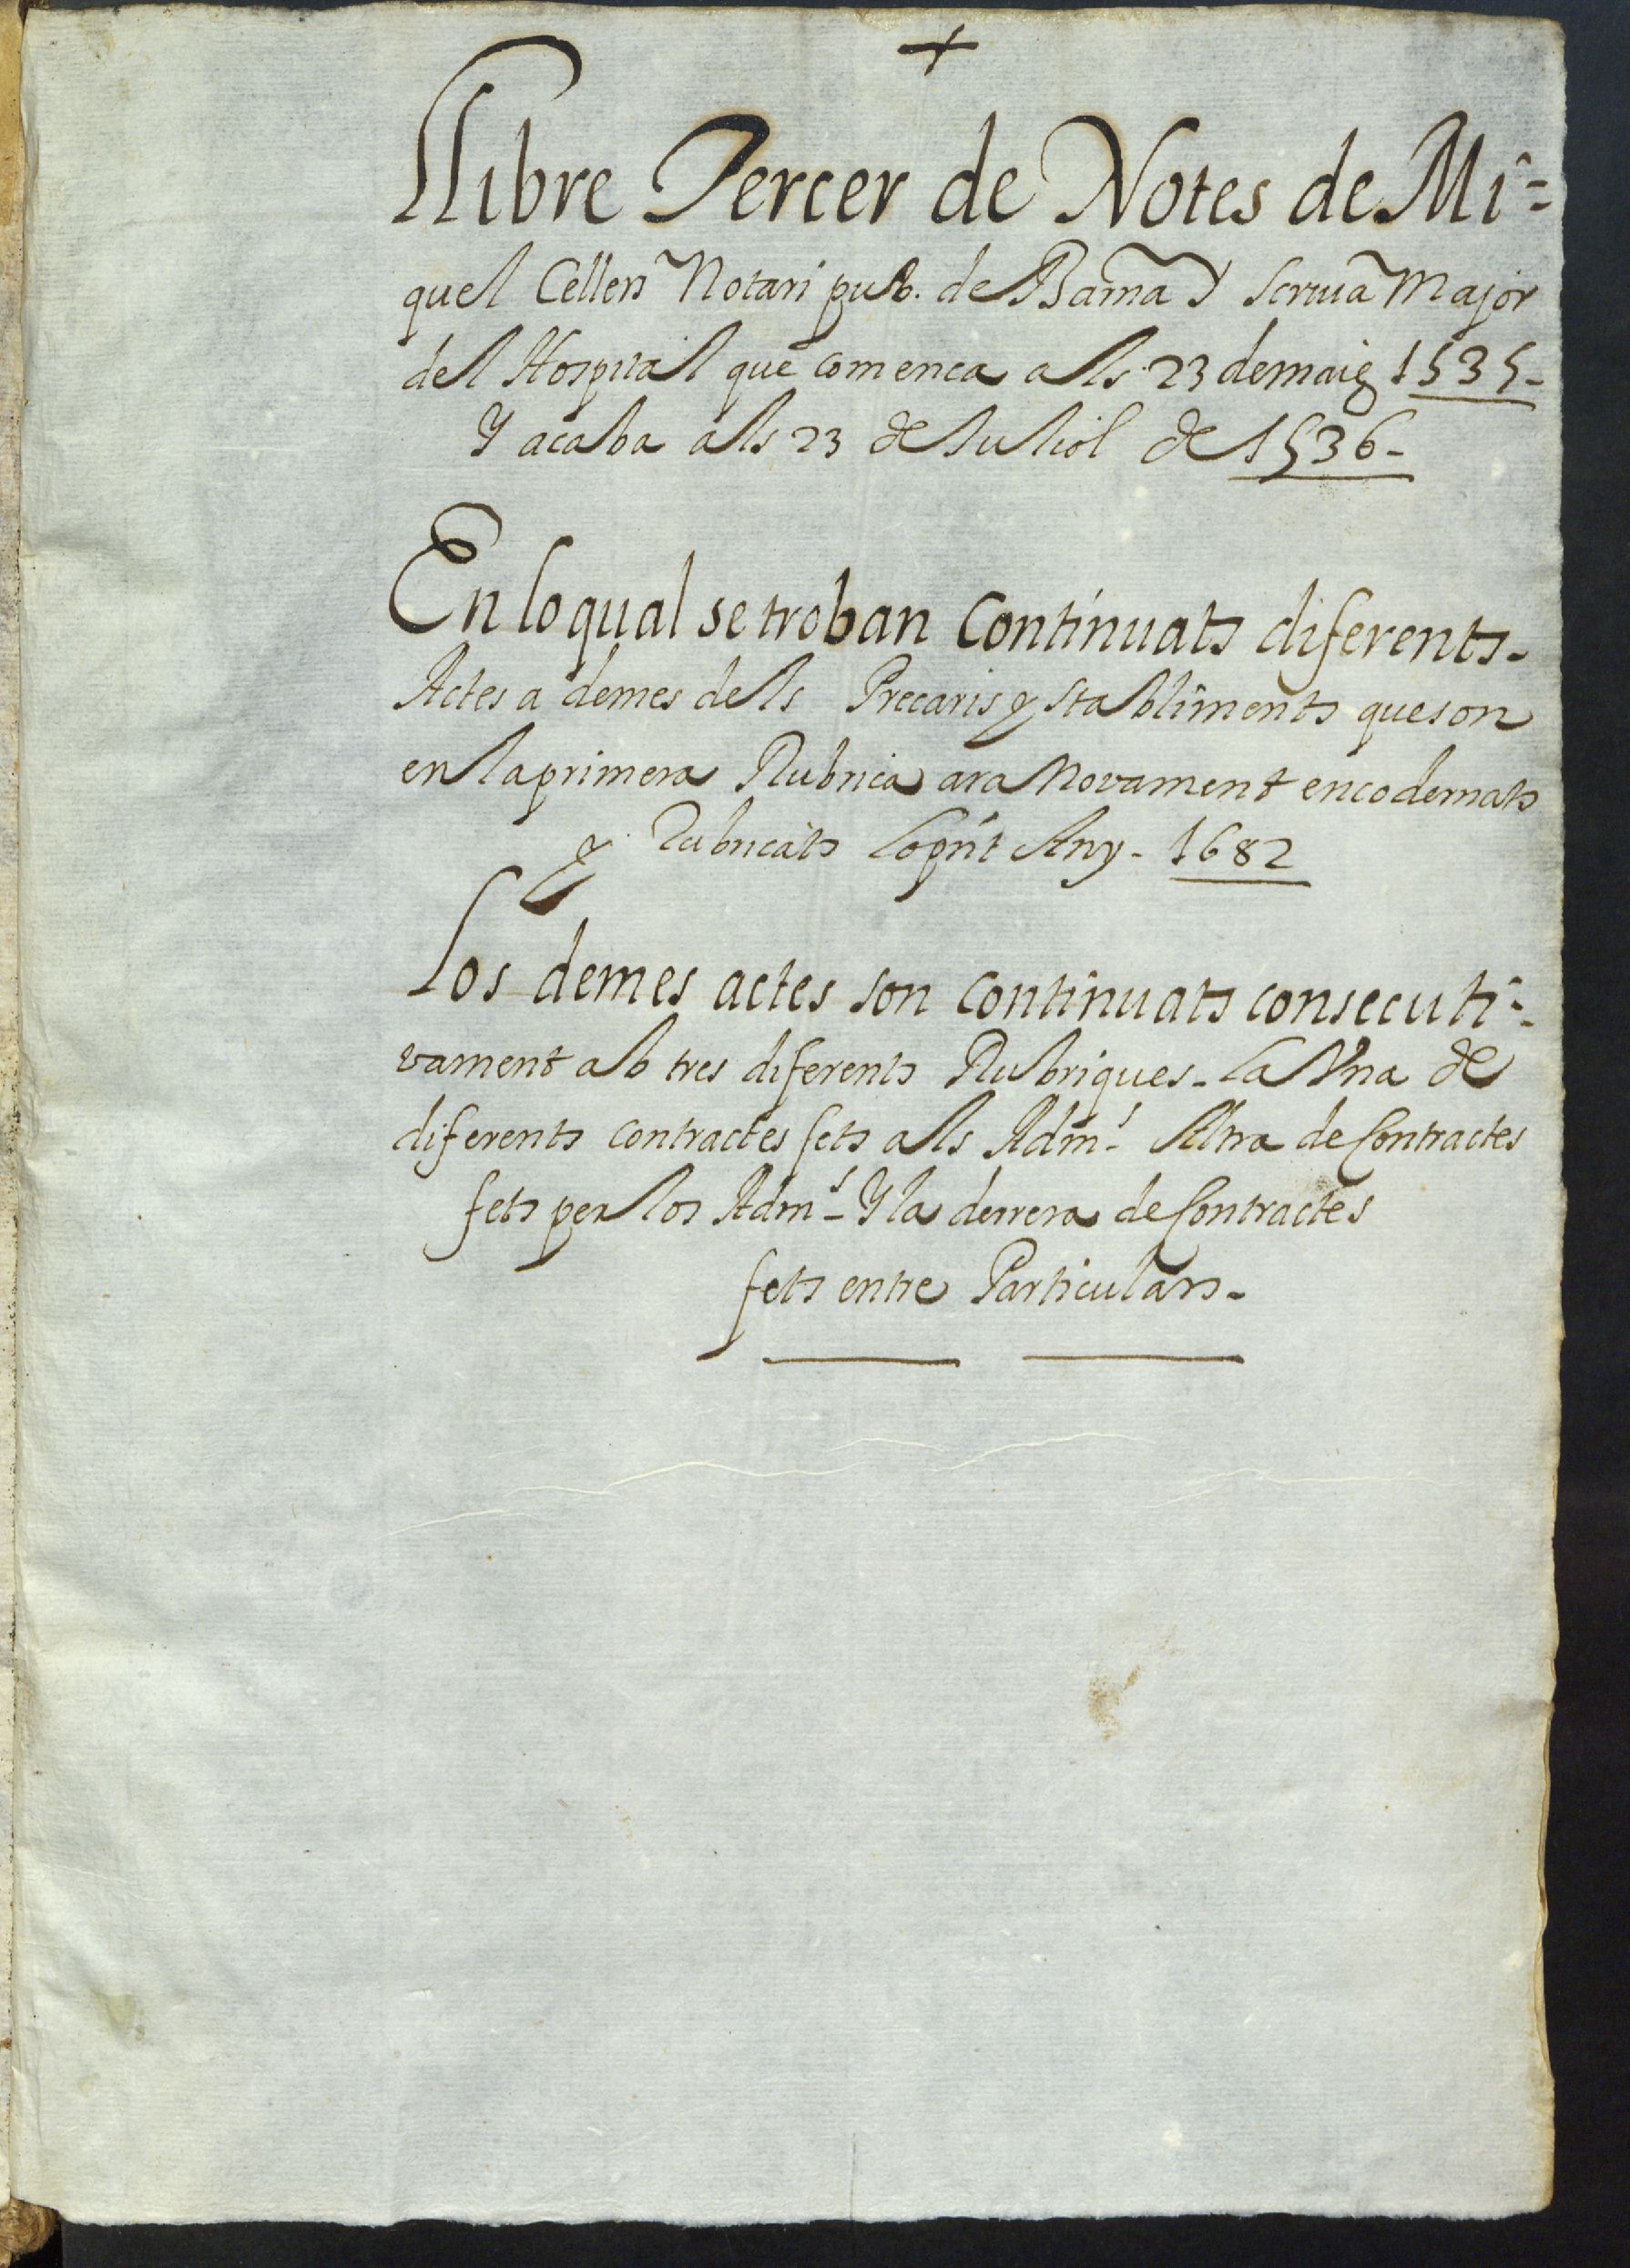 +
Llibre Tercer de Notes de Mi=
quel Cellers Notari pub. de Barna Y Scriuà Major
del Hospital que comenca als 23 de maig 1535-
Y acaba als 23 de Juliol de 1536-
En lo qual se troban Continuats diferents-
Actes a demes dels Precaris y stabliments que son
en la primera Rubrica ara Novament encodernats
Y Rubricats Lo pnt Any- 1682
Los demes actes son continuats consecuti-
vament ab tres diferents Rubriques- La Vna de
diferents contractes fets als Adm.s Altra de Contractes
fets per los Adm.s Y la derrera de Contractes
fets entre Particulars-